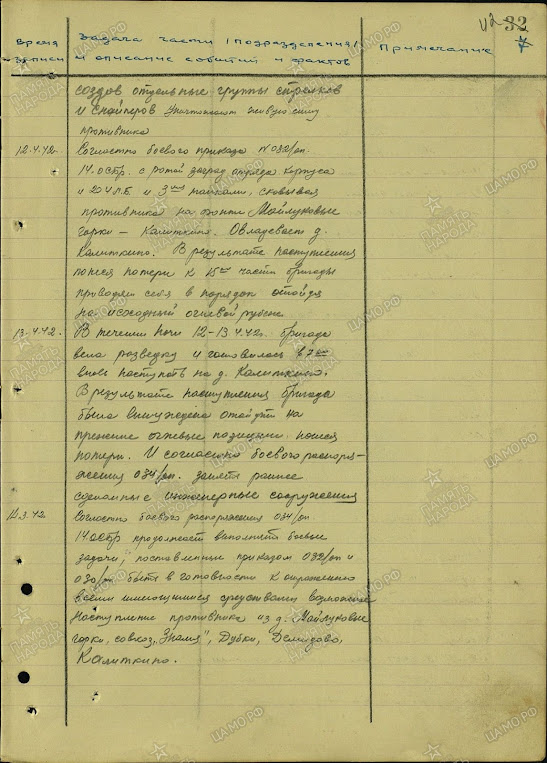 42 32
Время записи
Задача части /подразделения/ и описание событий и фактов
Примечание
создав отдельные группы стрелков
и снайперов уничтожают живую силу
противника
12.4.42. Согласно боевого приказа №032/оп.
14.остр. с ротой заград отряда корпуса
и 204 Л.Б. и 3мя танками, сковывая
противника на фронте Майлуковы
горки – Калиткино. Овладевает д.
Калиткино. В результате наступления
понеся потери к 15оо части бригады
проводили себя в порядок отойдя
на исходный огневой рубеж
13.4.42. В течении ночи 12-13.4.42г. бригада
вела разведку и готовилась к 7оо
вновь наступать на д. Калиткино.
В результате наступления бригада
была вынуждена отойти на
прежние огневые позиции понеся
потери. И согласно боевого распоря-
жения 034/оп. занять ранее
сделанные инженерные сооружения
Согласно боевого распоряжения 034/оп
14 остр продолжает выполнять боевые
задачи, поставленные приказом 032/оп и
030/оп быть в готовности к отражению
всеми имеющимися средствами возможное
наступление противника из д. Майлуковы
горки, совхоз „Знамя", Дубки, Демидово,
Калиткино.